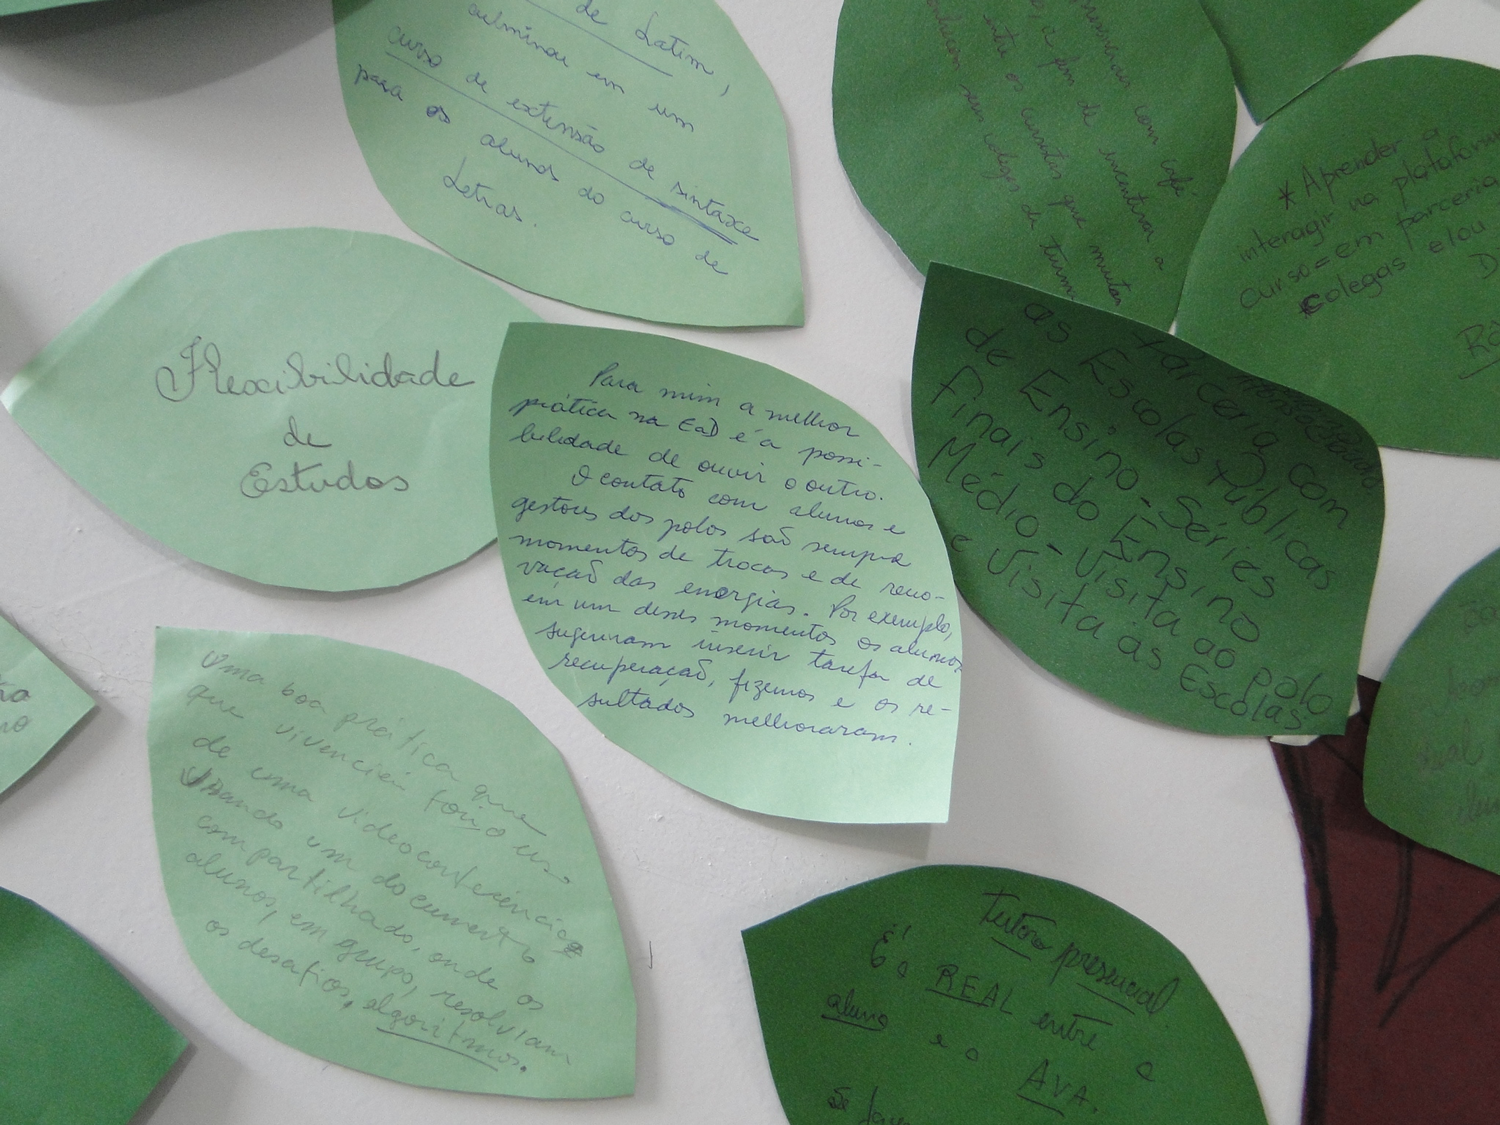 de Latim,
culminou em um
curso de extensão de sintaxe
para os alunos do curso de
Letras.
com café
, a fim de incentivar a
entre os cursistas que muitas
seus colegas de turma
* Aprender a
interagir na plataforma
curso = em parceria
colegas e/ou
Flexibilidade
de
Estudos
Para mim a melhor
prática na EaD é a possi-
bilidade de ouvir o outro.
O contato com alunos e
gestores dos polos são sempre
momentos de trocas e de reno-
vação das energias. Por exemplo,
em um desses momentos os alunos
sugeriram inserir tarefa de
recuperação, fizemos e os re-
sultados melhoraram.
Parceria com
as Escolas Públicas
de Ensino - Séries
Finais do Ensino
Médio - Visita ao polo
e Visita às
Escolas
Uma boa prática que
que vivenciei foi o us-
de uma videoconferência
Usando um documento
compartilhado, onde os
alunos, em grupo, resolviam
os desafios, algoritmos.
Tutor presencial
É o REAL entre o
aluno e o AVA.